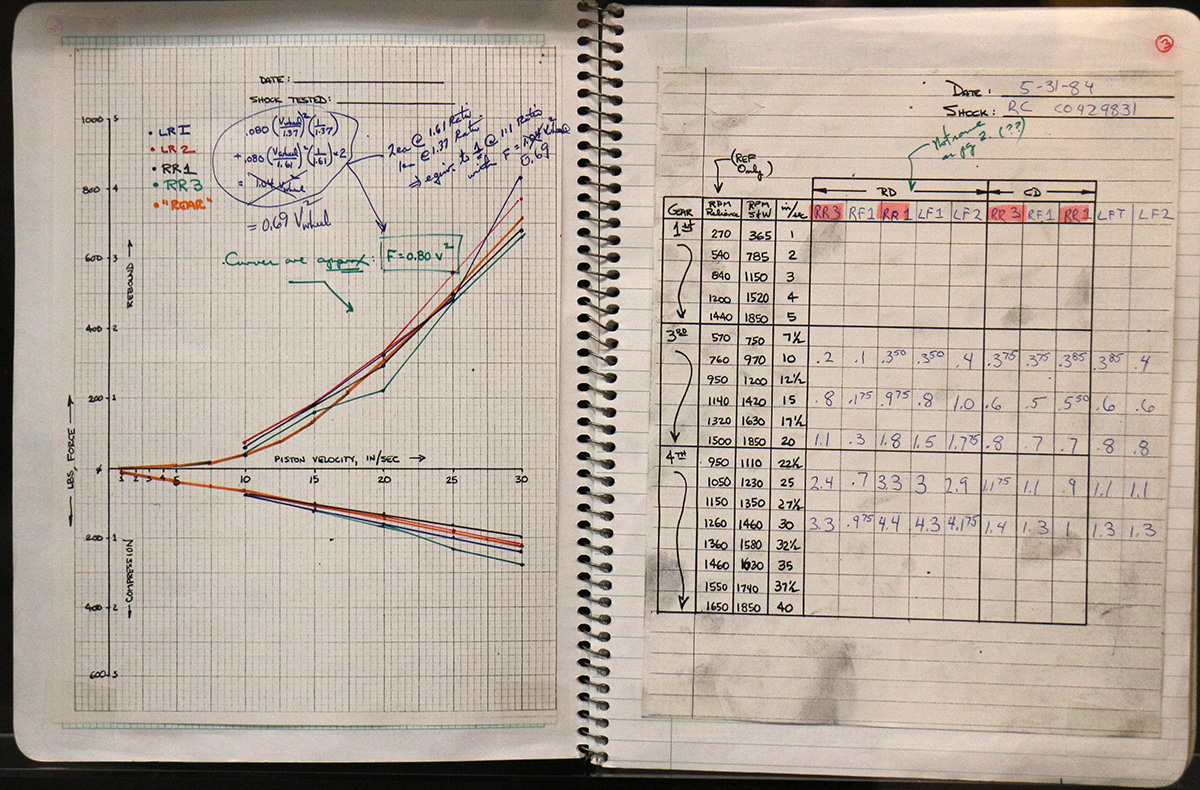 DATE:
SHOCK TESTED:
• LR1
• LR2
• RR1
• RR3
• "REAR"
.080 (Vwheel/1.37)² (1/1.37)
+ .080 (Vwheel/1.61)² (1/1.61) = 2
= 1.04 V²wheel
= 0.69 V²wheel
2ea @ 1.61 Ratio
1ea @ 1.37 Ratio
⇒ equiv. to 1 @ 1:1 Ratio
with F =
0.69
Curves are approx: F = 0.80 V²
1000 5
800 4
600 3
400 2
200 1
REBOUND →
LBS, FORCE
PISTON VELOCITY, IN/SEC →
1 2 3 4 5 10 15 20 25 30
200 1
400 2
600 3
COMPRESSION
3
DATE: 5-31-84
SHOCK: RC CO429831
Not same
as pg 2. (??)
(REF
ONLY)
RD CD
GEAR RPM Reliance RPM S&W in/sec RR3 RF1 RR1 LF1 LF2 RR3 RF1 RR1 LF1 LF2
1ST 270 365 1
540 785 2
840 1150 3
1200 1520 4
1440 1850 5
3RD 570 750 7½
760 970 10 .2 .1 .350 .350 .4 .375 .375 .385 .385 .4
950 1200 12½
1140 1420 15 .8 .175 .975 .8 1.0 .6 .5 .550 .6 .6
1320 1630 17½
1500 1850 20 1.1 .3 1.8 1.5 1.75 .8 .7 .7 .8 .8
4TH 950 1110 22½
1050 1230 25 2.4 .7 3.3 3 2.9 1.175 1.1 .9 1.1 1.1
1150 1350 27½
1260 1460 30 3.3 .975 4.4 4.3 4.175 1.4 1.3 1 1.3 1.3
1360 1580 32½
1460 1630 35
1550 1740 37½
1650 1850 40